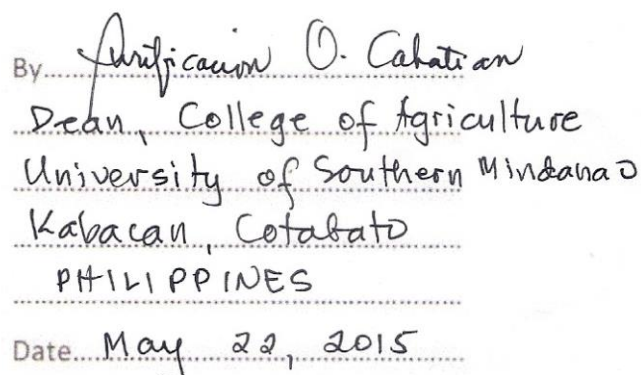 By Purificacion O. Cahatian
Dean, College of Agriculture
University of Southern Mindanao
Kabacan, Cotabato
PHILIPPINES
Date May 22, 2015